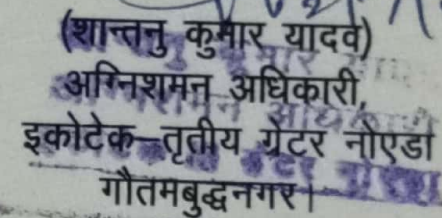 (शान्तनु कुमार यादव)
अग्निशमन अधिकारी,
इकोटेक–तृतीय ग्रेटर नोएडा
गौतमबुद्धनगर।